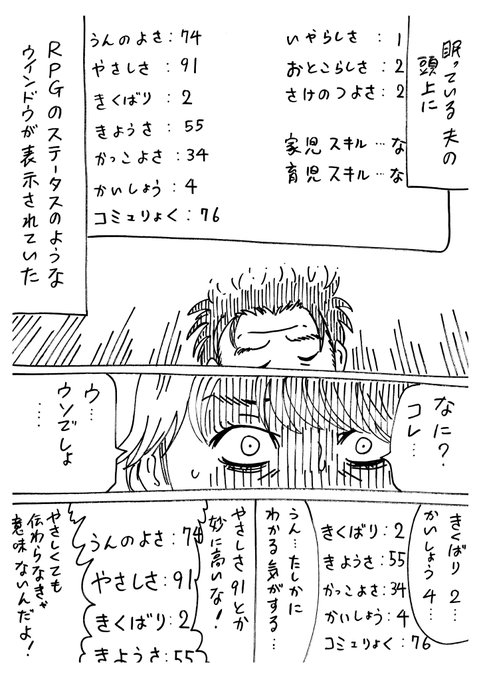 眠っている夫の
頭上に
いやらしさ：1
おとこらしさ：2
さけのつよさ：2
家児スキル…な
育児スキル…な
うんのよさ：74
やさしさ：91
きくばり：2
きようさ：55
かっこよさ：34
かいしょう：4
コミュりょく：76
RPGのステータスのような
ウインドウが表示されていた
なに？
コレ…
ウ…
ウソでしょ
……
きくばり 2…
かいしょう 4…
きくばり：2
きようさ：55
かっこよさ：34
かいしょう：4
コミュりょく：76
うん…たしかに
わかる気がする…
やさしさ 91とか
妙に高いな！
うんのよさ：74
やさしさ：91
きくばり：2
きようさ：55
やさしくても
伝わらなきゃ
意味ないんだよ！